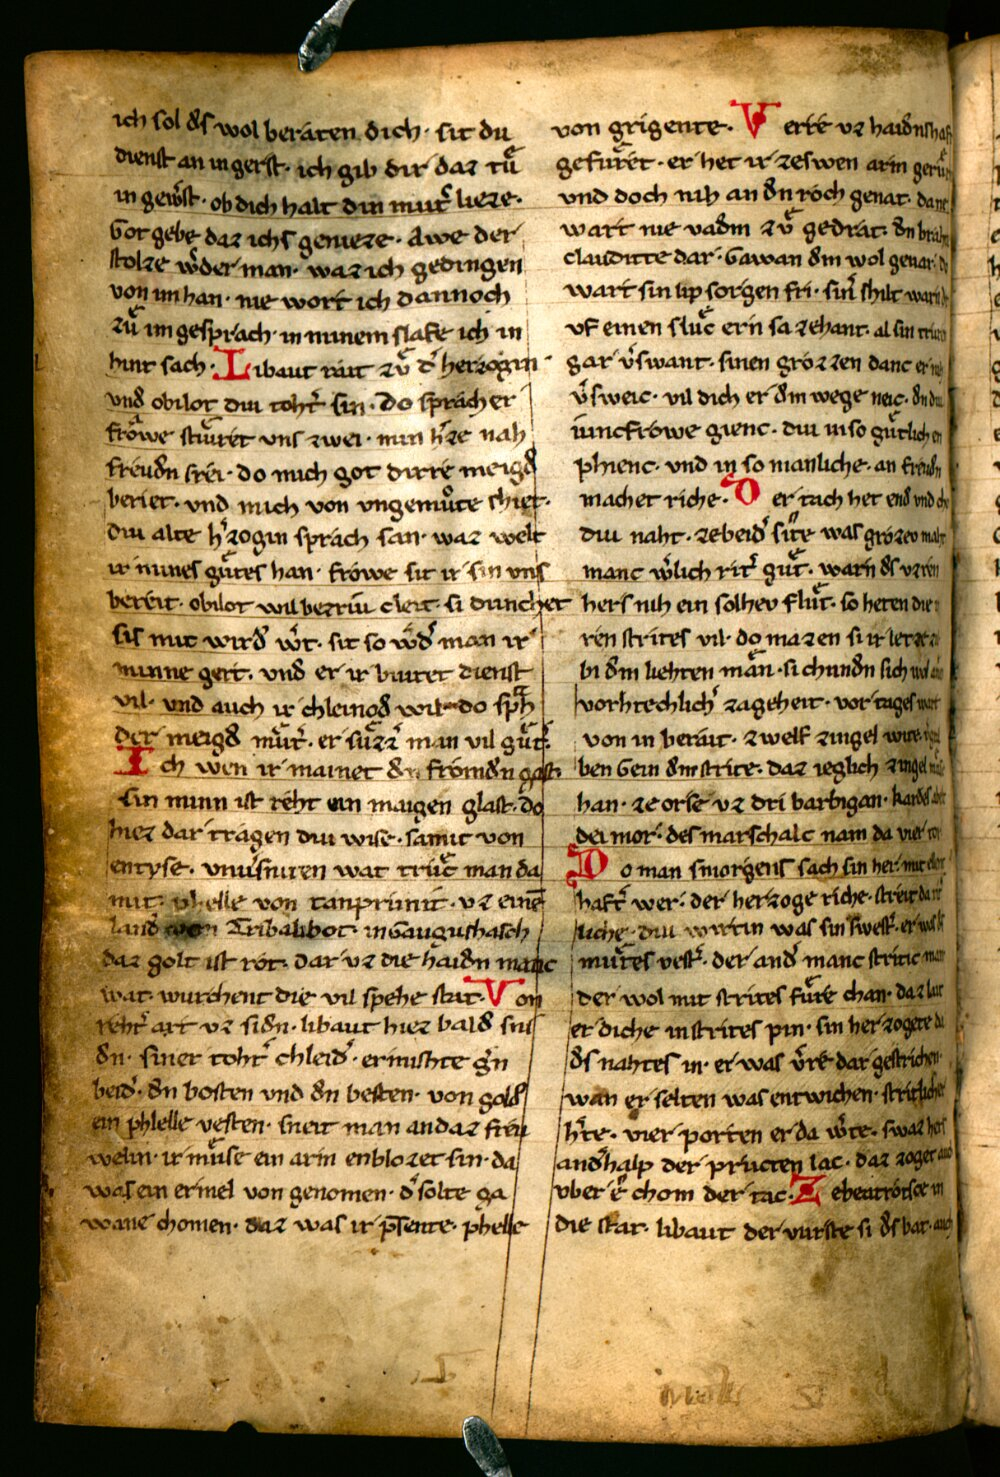 ich sol ds wol beraten dich · sit du
dienst an in gerst · ich gib dir daz tuͤ
in gew̾st · ob dich halt din mut̾ lieze ·
Got gebe daz ichs genieze · Awe der
stolze w̾der man · waz ich gedingen
von im han · nie wort ich dannoch
zuͤ im gesprach · in minem slafe ich in
hint sach · Libaut rait zuͤ d̾ herzogin ·
vnd obilot diu toht̾ sin · Do sprach er
frowe stiuret vns zwei · min h̾ze nah
freudn srei · do mich got dirre meigd
beriet · vnd mich von vngemuͦte shiet ·
Diu alte h̾zogin sprach san · waz welt
ir mines guͤtes han · frowe sit ir sin vns
bereit · obilot wil bezriu cleit · si dunchet
sis mit wird w̾t · sit so w̾d man ir
minne gert · vnd er ir biutet dienst
vil · vnd auch ir chleinod wil · do sph
der meigd muͦt̾ · er suͤzz̾ man vil guͤt̾ ·
Ich wen ir mainet dn fromdn gast
sin minn ist reht ein maigen glast · do
hiez dar tragen diu wise · samit von
entyse · vnu̾sniten wat truͤc man da
mit · phelle von tanprunit · vz eine̅
land Tribalibot · in Gauguchasch
daz golt ist rot · dar vz die haidn manc
wat · wurchent die vil spehe stat · Von
reht̾ art vz sidn · libaut hiez bald sni
dn · siner toht̾ chleid̾ · er mishte g̾n
beid̾ · dn bosten vnd dn besten · von gold
ein phlelle vesten · sneit man an daz freu
welin · ir muͤse ein arm enblozet sin · da
was ein ermel von genomen · d̾ solte ga
wane chomen · daz was ir p̅sente · phelle
von grigente · Verre vz haidnshaft
gefuͤret · er het ir zeswen arm geruͤ
vnd doch nih an dn roch genat · danc
wart nie vadm zuͤ gedrat · dn brahte
clauditte dar · Gawan dm wol genar · do
wart sin lip sorgen fri · sin̾ shilt warn
vf einen sluͤc ern sa zehant · al sin truren
gar v̾swant · sinen grozzen danc er niht
v̾sweic · vil dich er dm wege neic · dn diu
iuncfrowe gienc · diu in so guͤtlich en
phienc · vnd in so manliche · an freudn
machet riche · Der tach het end vnd cho
diu naht · ze beid̾ site was grozev maht
manc w̾lich rit̾ guͤt · warn ds vzren
hers nih ein solhev fluͤt · so heten die
ren strites vil · do mazen si ir letze
bi dm liehten man · si chundn sich wol
vorhtechlich̾ zageheit · vor tages wart
von in berait · zwelf zingel wite
ben Gein dm strite · daz ieglich zingel
han · ze orse vz dri barbigan · kardes
dei mor · des marschalc nam da vier tor
Do man smorgens sach sin her mit elert
haft̾ wer · der herzoge riche · streit da
liche · diu wirtin was sin swest̾ · er was
muͤtes vest̾ · der and̾ manc stritic man
der wol mit strites fuͤre chan · daz lat
er diche in strites pin · sin herzogete da
ds nahtes in · er was v̾re dar gestrichen ·
wan er selten was entwichen · stritlicher
h̾te · vier porten er da w̾te · swaz hers
and̾halp der pructen lac · daz zoget
vber e̾ chom der tac · Ze beatrotsce in
die stat · libaut der vurste si ds bat · auch